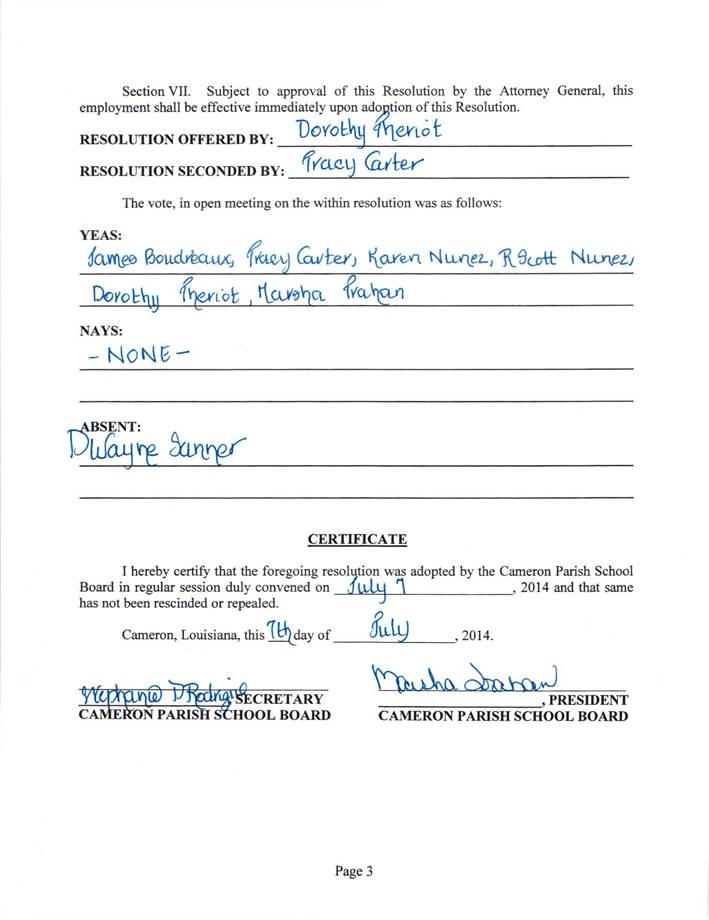 Section VII. Subject to approval of this Resolution by the Attorney General, this
employment shall be effective immediately upon adoption of this Resolution.
RESOLUTION OFFERED BY: Dorothy Theriot
RESOLUTION SECONDED BY: Tracy Carter
The vote, in open meeting on the within resolution was as follows:
YEAS:
James Boudreaux, Tracy Carter, Karen Nunez, R Scott Nunez,
Dorothy Theriot, Marsha Trahan
NAYS:
- NONE -
ABSENT:
DWayne Sanner
CERTIFICATE
I hereby certify that the foregoing resolution was adopted by the Cameron Parish School
Board in regular session duly convened on July 7, 2014 and that same
has not been rescinded or repealed.
Cameron, Louisiana, this 7th day of July, 2014.
Stephanie D Rodrigue, SECRETARY
CAMERON PARISH SCHOOL BOARD
Marsha Trahan
, PRESIDENT
CAMERON PARISH SCHOOL BOARD
Page 3